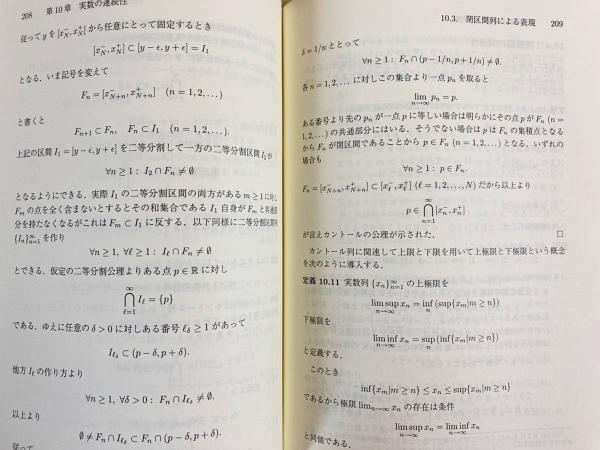 208　第10章　実数の連続性
従って y を [x_N^-, x_N^+] から任意にとって固定するとき
[x_N^-, x_N^+] ⊂ [y − ϵ, y + ϵ] = I_1
となる．いま記号を変えて
F_n = [x_{N+n}^-, x_{N+n}^+]　(n = 1, 2, . . .)
と書くと
F_{n+1} ⊂ F_n,　F_n ⊂ I_1　(n = 1, 2, . . .).
上記の区間 I_1 = [y − ϵ, y + ϵ] を二等分割して一方の二等分割区間 I_2 が
∀n ≥ 1 : I_2 ∩ F_n ≠ ∅
となるようにできる．実際 I_1 の二等分割区間の両方がある m ≥ 1 に対し
F_m の点を全く含まないとするとその和集合である I_1 自身が F_m と共通部
分を持たなくなるがこれは F_m ⊂ I_1 に反する．以下同様に二等分割区間列
{I_n}_{n=1}^∞ を作り
∀n ≥ 1, ∀ℓ ≥ 1 : I_ℓ ∩ F_n ≠ ∅
とできる．仮定の二等分割公理よりある点 p ∈ ℝ に対し
⋂_{ℓ=1}^∞ I_ℓ = {p}
である．ゆえに任意の δ > 0 に対しある番号 ℓ_δ ≥ 1 があって
I_{ℓ_δ} ⊂ (p − δ, p + δ).
他方 I_ℓ の作り方より
∀n ≥ 1, ∀δ > 0 : F_n ∩ I_{ℓ_δ} ≠ ∅.
以上より
∅ ≠ F_n ∩ I_{ℓ_δ} ⊂ F_n ∩ (p − δ, p + δ).
従って
10.3.　閉区間列による表現　209
δ = 1/n ととって
∀n ≥ 1 : F_n ∩ (p − 1/n, p + 1/n) ≠ ∅.
各 n = 1, 2, . . . に対しこの集合より一点 p_n を取ると
lim_{n→∞} p_n = p.
ある番号より先の p_n が一点 p に等しい場合は明らかにその点 p が F_n (n =
1, 2, . . .) の共通部分にはいる．そうでない場合は p は F_n の集積点となる
から F_n が閉区間であることから p ∈ F_n (n = 1, 2, . . .) となる．いずれの
場合も
∀n ≥ 1 : p ∈ F_n.
F_n = [x_{N+n}^-, x_{N+n}^+] ⊂ [x_ℓ^-, x_ℓ^+] (ℓ = 1, 2, . . . , N) だから以上より
p ∈ ⋂_{n=1}^∞ [x_n^-, x_n^+]
が言えカントールの公理が示された．　□
カントール列に関連して上限と下限を用いて上極限と下極限という概念
を次のように導入する．
定義 10.11 実数列 {x_n}_{n=1}^∞ の上極限を
lim sup_{n→∞} x_n = inf_n (sup{x_m|m ≥ n})
下極限を
lim inf_{n→∞} x_n = sup_n (inf{x_m|m ≥ n})
と定義する．
このとき
inf{x_m|m ≥ n} ≤ x_n ≤ sup{x_m|m ≥ n}
であるから極限 lim_{n→∞} x_n の存在は条件
lim sup_{n→∞} x_n = lim inf_{n→∞} x_n
と同値である．